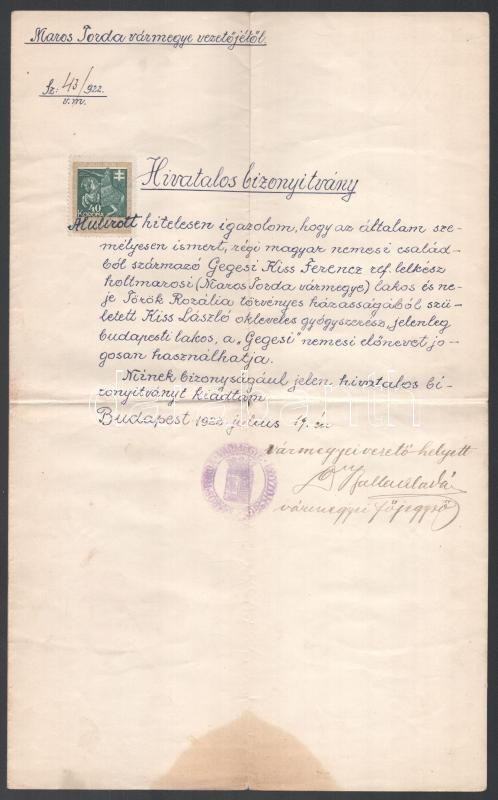 Maros Torda vármegye vezetőjétől.
Sz: 43/922.
v.m.
40
KORONA
Hivatalos bizonyitvány
Alulirott hitelesen igazolom, hogy az általam sze-
mélyesen ismert, régi magyar nemesi család-
ból származó Gegesi Kiss Ferencz ref. lelkész
holtmarosi (Maros Torda vármegye) lakos és ne-
je Török Rozália törvényes házasságából szü-
letett Kiss László okleveles gyógyszerész, jelenleg
budapesti lakos, a „Gegesi" nemesi előnevet jo-
gosan használhatja.
Minek bizonyságául jelen hivatalos bi-
zonyitványt kiadtam
Budapest 1922 julius 19. én
vármegyei vezető helyett
Dr
vármegyei főjegyző